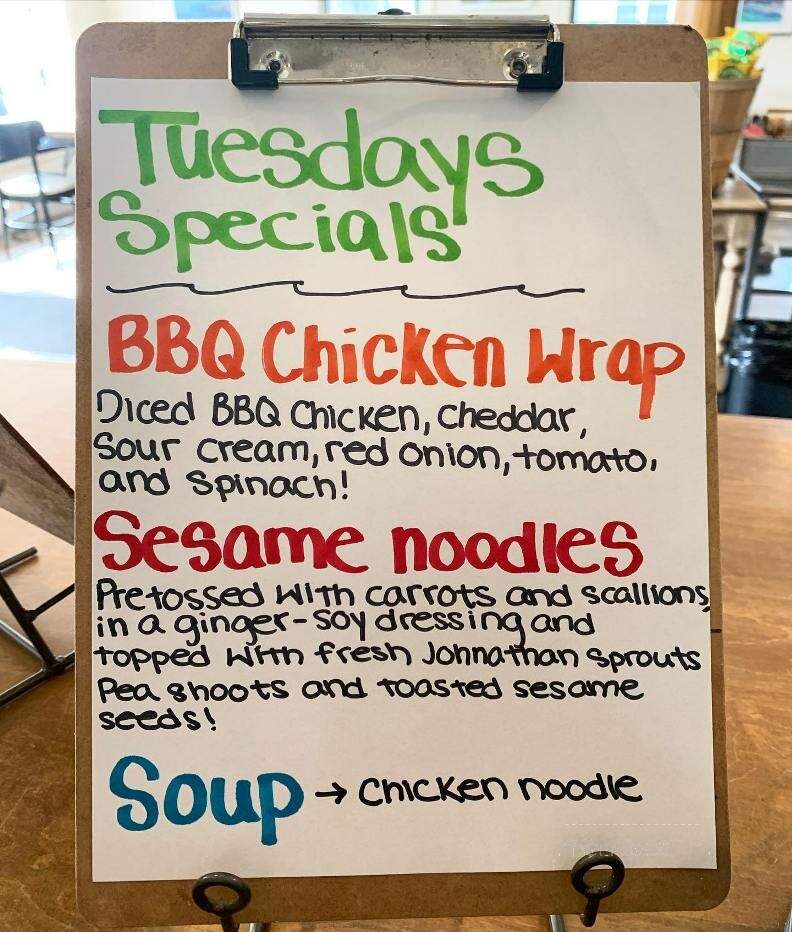 Tuesdays
Specials
BBQ Chicken Wrap
Diced BBQ Chicken, Cheddar,
Sour cream, red onion, tomato,
and Spinach!
Sesame noodles
Pretossed with carrots and scallions,
in a ginger-soy dressing and
topped with fresh Johnathan Sprouts
Pea shoots and toasted sesame
seeds!
Soup → Chicken noodle